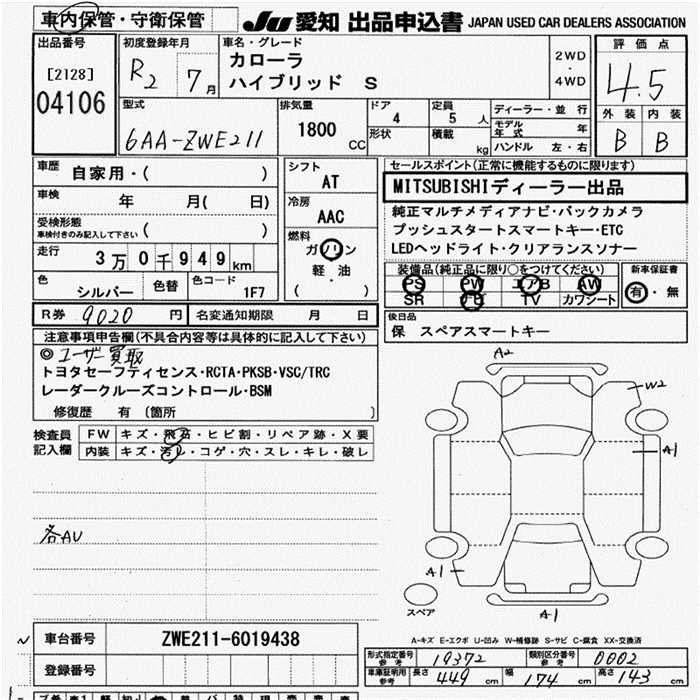 車内保管・守衛保管
JU 愛知 出品申込書 JAPAN USED CAR DEALERS ASSOCIATION
出品番号
[2128]
04106
初度登録年月
R2 7月
車名・グレード
カローラ
ハイブリッド S
2WD
・
4WD
評価点
4.5
外装 内装
B B
型式
6AA-ZWE211
排気量
1800 CC
ドア
4
形状
定員
5 人
積載
kg
ディーラー・並行
モデル年式 年
ハンドル 左・右
車歴 自家用・(
車検 年 月( 日)
受検形態
車検付きのみ記入して下さい ( )
走行 3万0千949km
色 シルバー 色替 色コード 1F7
シフト
AT
冷房
AAC
燃料
ガソリン
軽・油
( )
セールスポイント(正常に機能するものに限ります)
MITSUBISHIディーラー出品
純正マルチメディアナビ・バックカメラ
プッシュスタートスマートキー・ETC
LEDヘッドライト・クリアランスソナー
装備品(純正品に限り○をつけてください)
PS PW エアB AW
SR ナビ TV カワシート
新車保証書
有・無
R券 9020 円 名変通知期限 月 日
後日品
保 スペアスマートキー
注意事項申告欄(不具合内容等は具体的に記入して下さい)
◎ユーザー買取
トヨタセーフティセンス・RCTA・PKSB・VSC/TRC
レーダークルーズコントロール・BSM
修復歴 有 (箇所 )
検査員記入欄
FW キズ・飛石・ヒビ割・リペア跡・X要
内装 キズ・汚レ・コゲ・穴・スレ・キレ・破レ
各AU
A2
W2
A1
A1
A1
スペア
A-キズ E-エクボ U-凹み W-補修跡 S-サビ C-腐食 XX-交換済
車台番号 ZWE211-6019438
登録番号
型式指定番号 参考 19372 類別区分番号 参考 0002
車庫証明用 参考 長さ 449 cm 幅 174 cm 高さ 143 cm